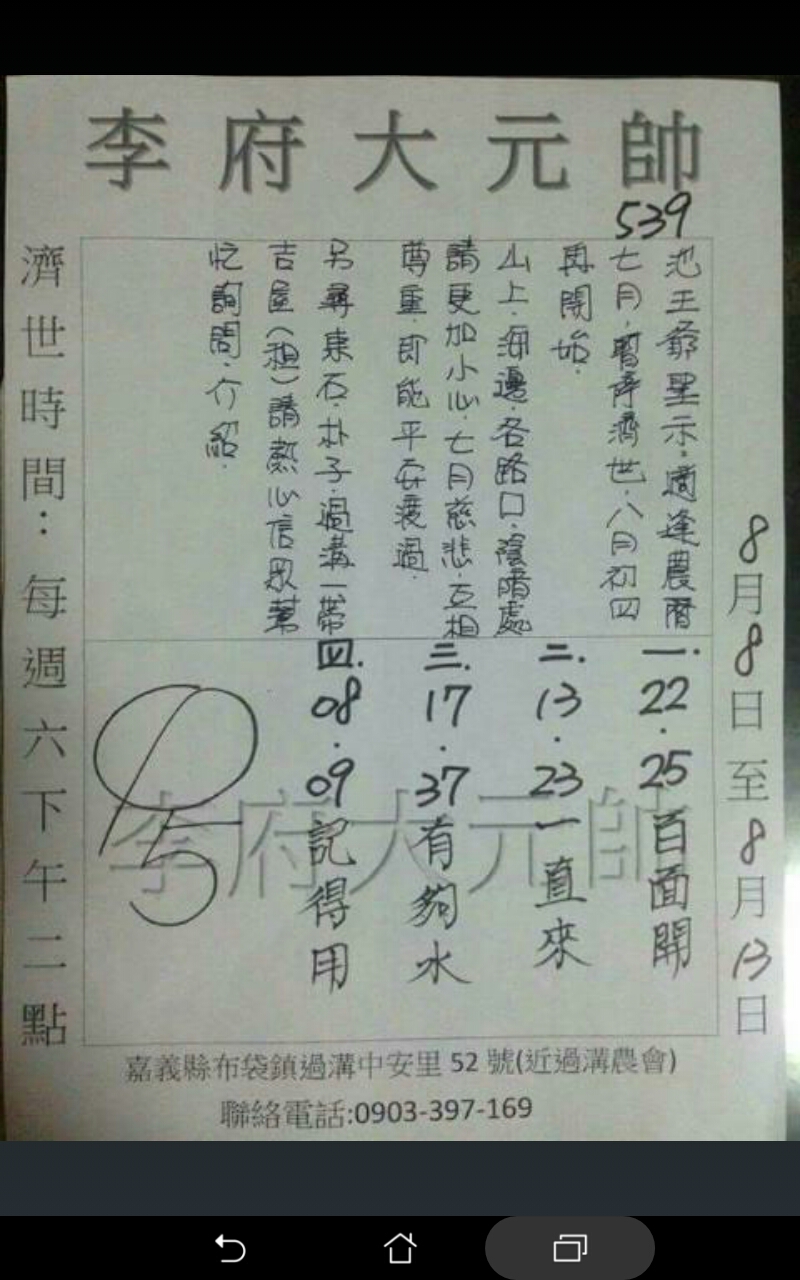 李府大元帥
539
池王爺聖示.適逢農曆
七月.暫停濟世.八月初四
再開始.
山上.海邊.各路口.陰暗處
請更加小心.七月慈悲.互相
尊重.即能平安渡過.
另尋東石.朴子.過溝一帶
吉屋(租)請熱心信眾幫
忙詢問.介紹.
一.22.25百面開
二.13.23一直來
三.17.37有夠水
四.08.09記得用
李府大元帥
8月8日至8月13日
濟世時間:每週六下午二點
嘉義縣布袋鎮過溝中安里52號(近過溝農會)
聯絡電話:0903-397-169